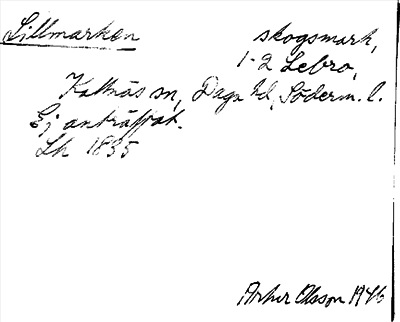 Lillmarken skogsmark,
1-2 Lebro,
Kattnäs sn, Daga hd, Söderm. l.
Ej anträffat.
Lh 1835
Arthur Olsson 1946